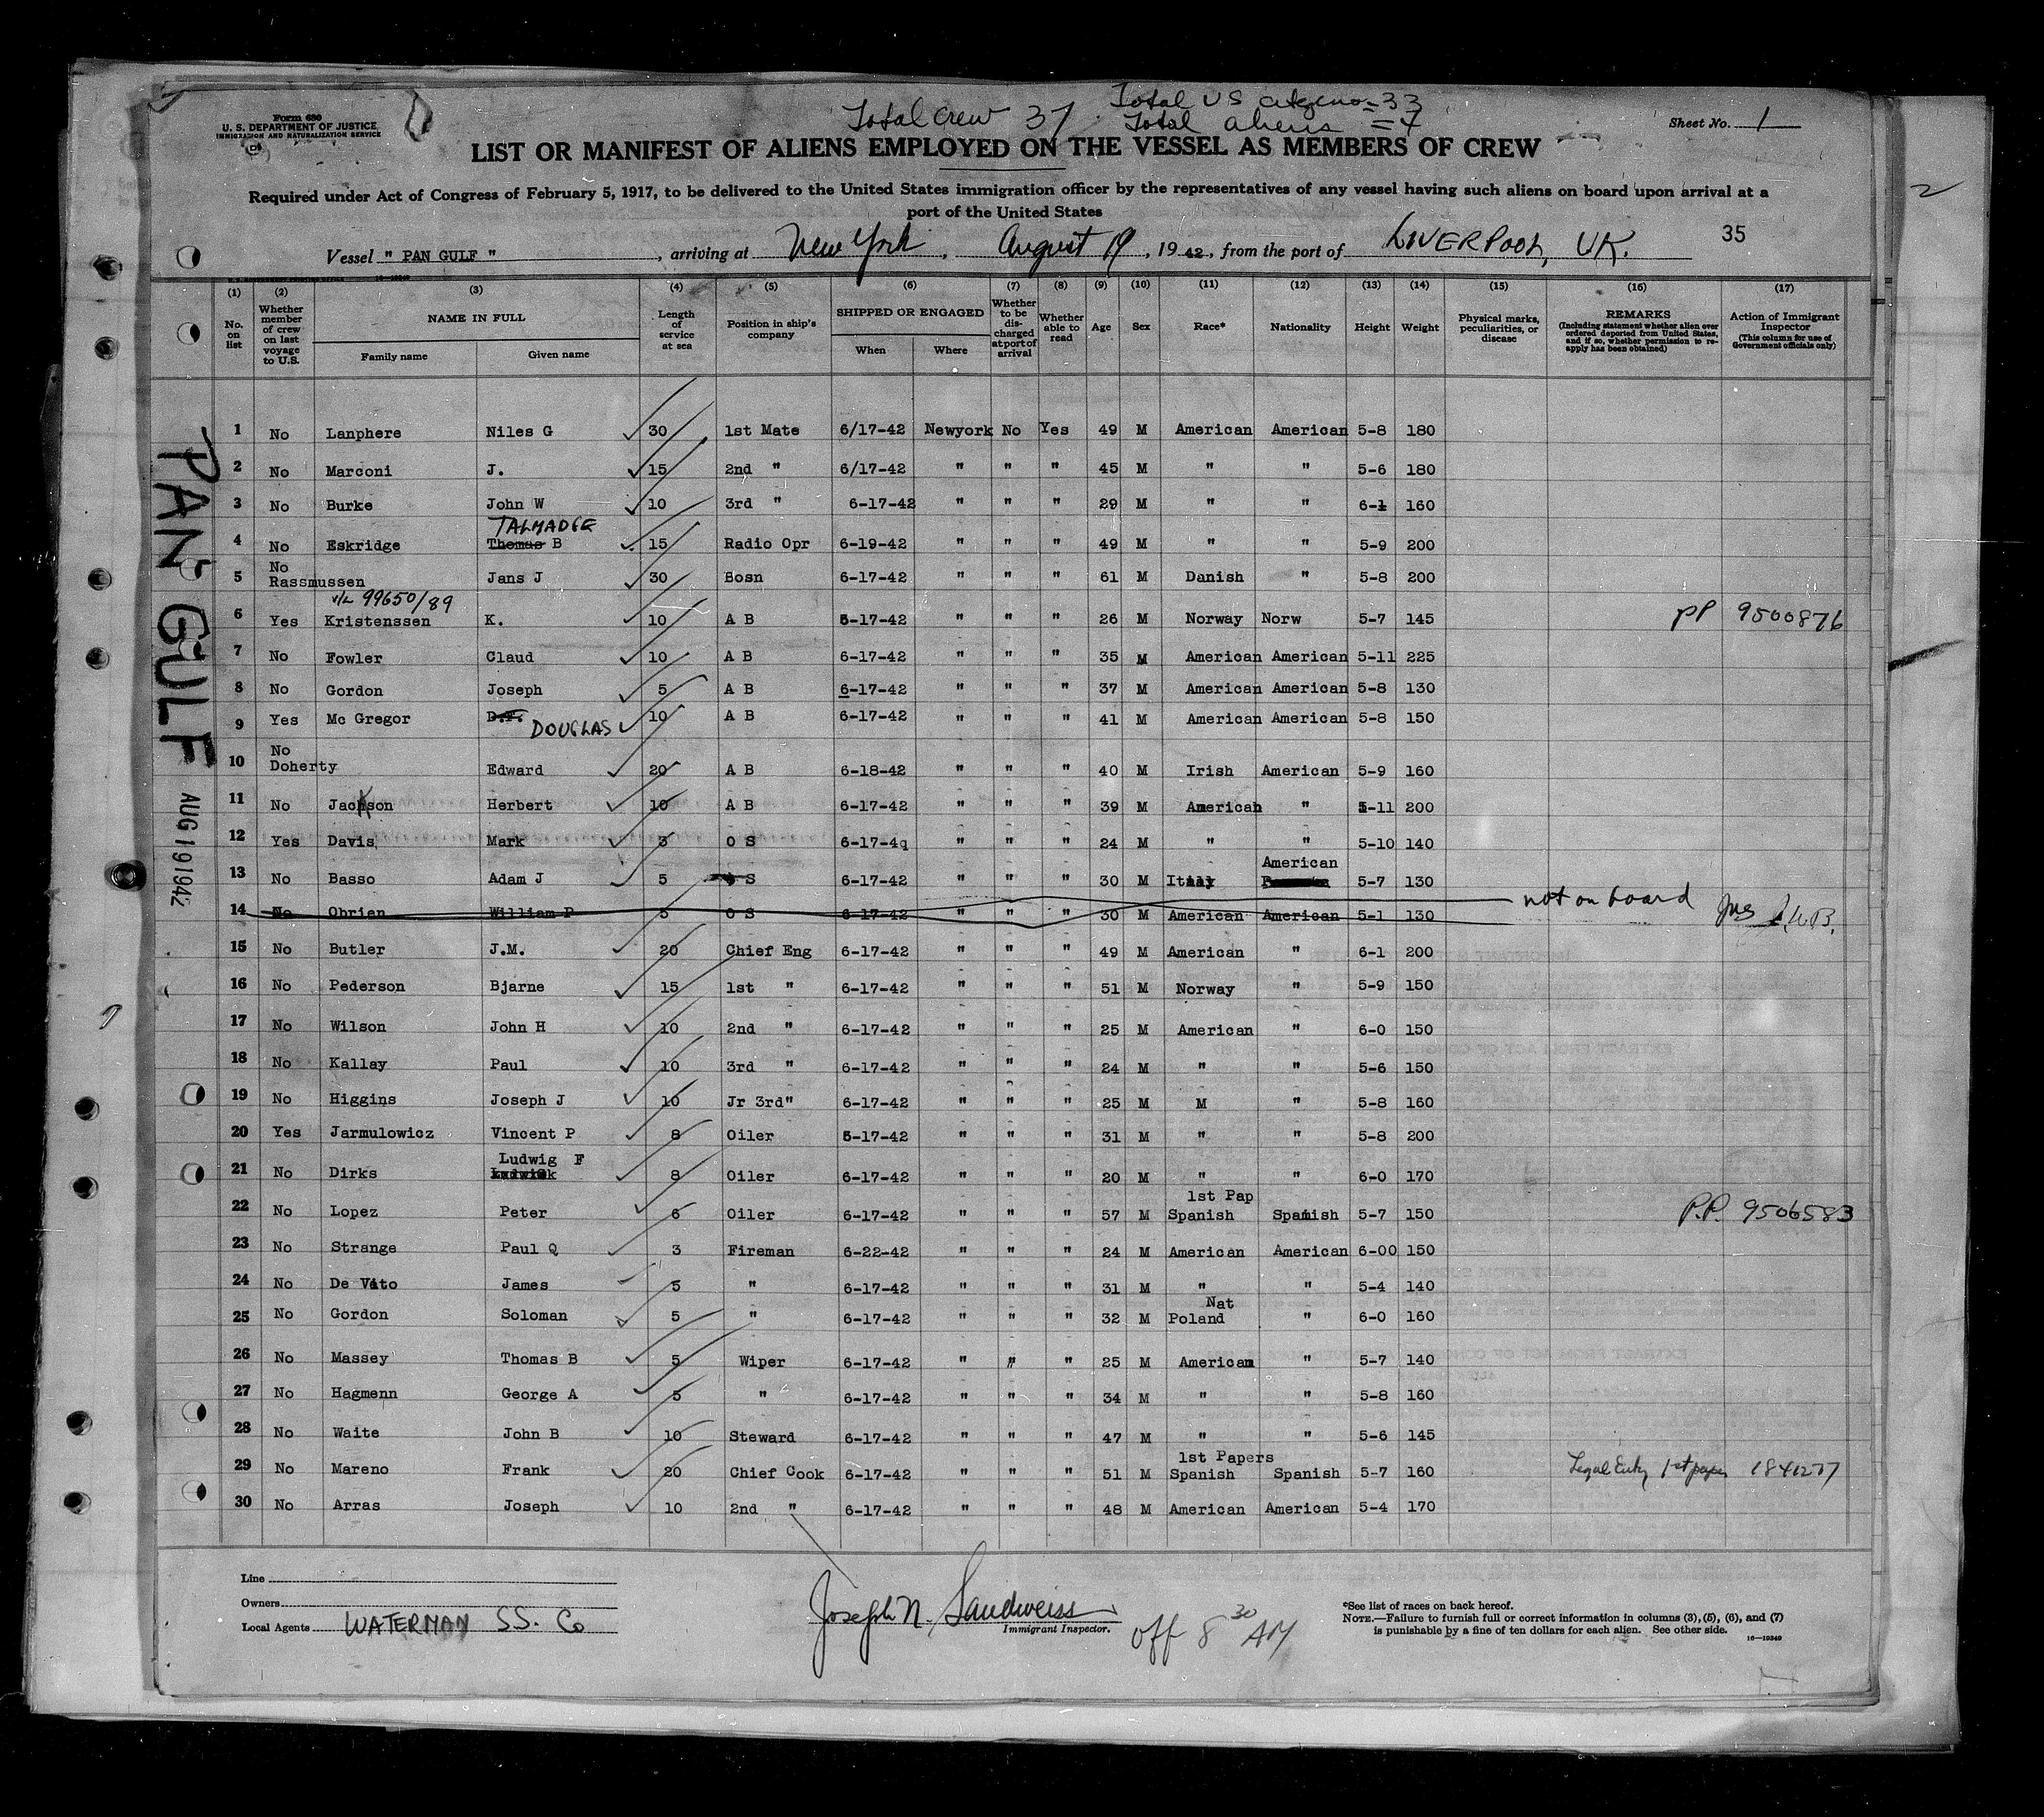 Total Crew 37
Total US citizens = 33
Total aliens = 4
Form 680
U. S. DEPARTMENT OF JUSTICE
IMMIGRATION AND NATURALIZATION SERVICE
Sheet No. 1
LIST OR MANIFEST OF ALIENS EMPLOYED ON THE VESSEL AS MEMBERS OF CREW
Required under Act of Congress of February 5, 1917, to be delivered to the United States immigration officer by the representatives of any vessel having such aliens on board upon arrival at a
port of the United States
2
35
Vessel " PAN GULF " , arriving at New York , August 19 , 19 42, from the port of LIVERPOOL, UK.
(1) (2) (3) (4) (5) (6) (7) (8) (9) (10) (11) (12) (13) (14) (15) (16) (17)
No. on list
Whether member of crew on last voyage to U.S.
NAME IN FULL
Family name Given name
Length of service at sea
Position in ship's company
SHIPPED OR ENGAGED
When Where
Whether to be discharged at port of arrival
Whether able to read
Age
Sex
Race*
Nationality
Height
Weight
Physical marks, peculiarities, or disease
REMARKS
(Including statement whether alien ever ordered deported from United States, and if so, whether permission to re-apply has been obtained)
Action of Immigrant Inspector
(This column for use of Government officials only)
1 No Lanphere Niles G 30 1st Mate 6/17-42 Newyork No Yes 49 M American American 5-8 180
2 No Marconi J. 15 2nd " 6/17-42 " " " 45 M " " 5-6 180
3 No Burke John W 10 3rd " 6-17-42 " " " 29 M " " 6-1 160
TALMADGE
4 No Eskridge Thomas B 15 Radio Opr 6-19-42 " " " 49 M " " 5-9 200
5 No Rassmussen Jans J 30 Bosn 6-17-42 " " " 61 M Danish " 5-8 200
v/L 99650/89
6 Yes Kristenssen K. 10 A B 5-17-42 " " " 26 M Norway Norw 5-7 145 PP 9500876
7 No Fowler Claud 10 A B 6-17-42 " " " 35 M American American 5-11 225
8 No Gordon Joseph 5 A B 6-17-42 " " " 37 M American American 5-8 130
9 Yes Mc Gregor D.F. DOUGLAS 10 A B 6-17-42 " " " 41 M American American 5-8 150
10 No Doherty Edward 20 A B 6-18-42 " " " 40 M Irish American 5-9 160
11 No Jackson Herbert 10 A B 6-17-42 " " " 39 M American " 5-11 200
12 Yes Davis Mark 3 O S 6-17-4q " " " 24 M " " 5-10 140
American
13 No Basso Adam J 5 S 6-17-42 " " " 30 M Italy 5-7 130
14 No Obrien William P 5 O S 6-17-42 " " " 30 M American American 5-1 130 not on board
15 No Butler J.M. 20 Chief Eng 6-17-42 " " " 49 M American " 6-1 200
16 No Pederson Bjarne 15 1st " 6-17-42 " " " 51 M Norway " 5-9 150
17 No Wilson John H 10 2nd " 6-17-42 " " " 25 M American " 6-0 150
18 No Kallay Paul 10 3rd " 6-17-42 " " " 24 M " " 5-6 150
19 No Higgins Joseph J 10 Jr 3rd" 6-17-42 " " " 25 M M " 5-8 160
20 Yes Jarmulowicz Vincent P 8 Oiler 5-17-42 " " " 31 M " " 5-8 200
Ludwig F
21 No Dirks Ludwick 8 Oiler 6-17-42 " " " 20 M " " 6-0 170
1st Pap
22 No Lopez Peter 6 Oiler 6-17-42 " " " 57 M Spanish Spanish 5-7 150 P.P. 9506583
23 No Strange Paul Q 3 Fireman 6-22-42 " " " 24 M American American 6-00 150
24 No De Vito James 5 " 6-17-42 " " " 31 M " " 5-4 140
Nat
25 No Gordon Soloman 5 " 6-17-42 " " " 32 M Poland " 6-0 160
26 No Massey Thomas B 5 Wiper 6-17-42 " " " 25 M American " 5-7 140
27 No Hagmenn George A 5 " 6-17-42 " " " 34 M " " 5-8 160
28 No Waite John B 10 Steward 6-17-42 " " " 47 M " " 5-6 145
1st Papers
29 No Mareno Frank 20 Chief Cook 6-17-42 " " " 51 M Spanish Spanish 5-7 160 Legal Entry 1st paper 1841277
30 No Arras Joseph 10 2nd " 6-17-42 " " " 48 M American American 5-4 170
PAN GULF
AUG 19 1942
Line
Owners
Local Agents WATERMAN SS. Co
Joseph N. Sandweiss
Immigrant Inspector.
off 8 30 AM
*See list of races on back hereof.
NOTE.—Failure to furnish full or correct information in columns (3), (5), (6), and (7)
is punishable by a fine of ten dollars for each alien. See other side.
16—19349